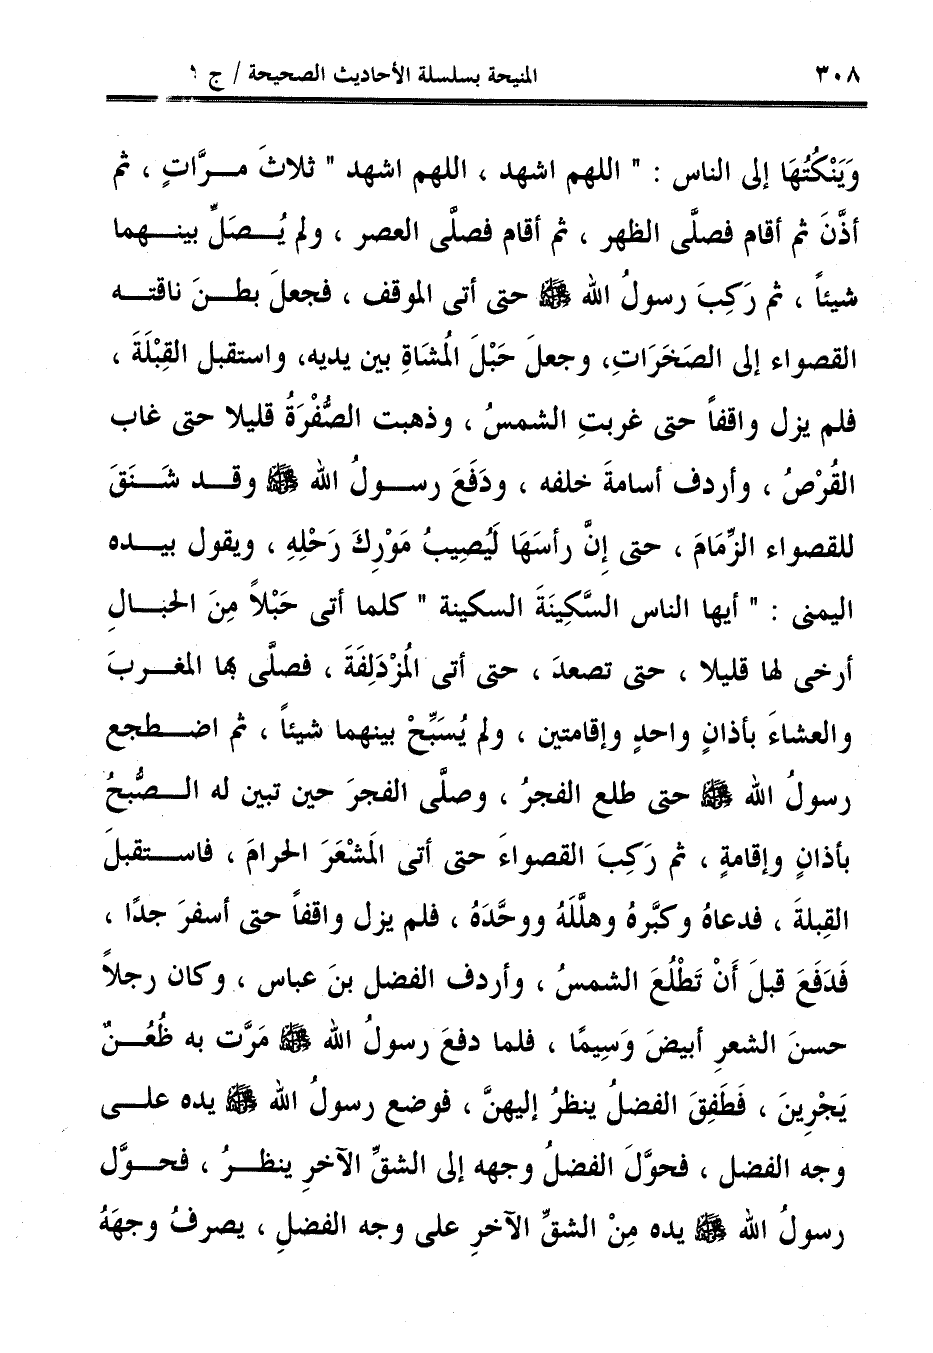 ٣٠٨ المنيحة بسلسلة الأحاديث الصحيحة / ج ١
وَيَنْكُتُهَا إلى الناس : " اللهم اشهد ، اللهم اشهد " ثلاثَ مرَّاتٍ ، ثم
أذَّنَ ثم أقام فصلَّى الظهر ، ثم أقام فصلَّى العصر ، ولم يُصَلِّ بينهما
شيئاً ، ثم رَكِبَ رسولُ الله ﷺ حتى أتى الموقف ، فجعلَ بطنَ ناقته
القصواء إلى الصَخَرَاتِ، وجعلَ حَبْلَ المُشَاةِ بين يديه، واستقبل القِبْلَةَ ،
فلم يزل واقفاً حتى غربتِ الشمسُ ، وذهبت الصُّفْرَةُ قليلا حتى غاب
القُرْصُ ، وأردف أسامةَ خلفه ، ودَفَعَ رسولُ الله ﷺ وقد شَنَقَ
للقصواء الزِّمَامَ ، حتى إنَّ رأسَهَا لَيُصِيبُ مَوْرِكَ رَحْلِهِ ، ويقول بيده
اليمنى : " أيها الناس السَّكِينَةَ السكينة " كلما أتى حَبْلاً مِنَ الحبالِ
أرخى لها قليلا ، حتى تصعدَ ، حتى أتى المُزْدَلِفَةَ ، فصلَّى بها المغربَ
والعشاءَ بأذانٍ واحدٍ وإقامتين ، ولم يُسَبِّحْ بينهما شيئاً ، ثم اضطجع
رسولُ الله ﷺ حتى طلع الفجرُ ، وصلَّى الفجرَ حين تبين له الصُّبحُ
بأذانٍ وإقامةٍ ، ثم رَكِبَ القصواءَ حتى أتى المَشْعَرَ الحرامَ ، فاستقبلَ
القِبلةَ ، فدعاهُ وكبَّرهُ وهلَّلَهُ ووحَّدَهُ ، فلم يزل واقفاً حتى أسفرَ جدًا ،
فَدَفَعَ قبلَ أَنْ تَطْلُعَ الشمسُ ، وأردف الفضل بنَ عباس ، وكان رجلاً
حسنَ الشعرِ أبيضَ وَسِيمًا ، فلما دفعَ رسولُ الله ﷺ مَرَّت به ظُعُنٌ
يَجْرِينَ ، فَطَفِقَ الفضلُ ينظرُ إليهنَّ ، فوضع رسولُ الله ﷺ يده على
وجه الفضل ، فحوَّلَ الفضلُ وجهه إلى الشقِّ الآخرِ ينظرُ ، فحوَّل
رسولُ الله ﷺ يده مِنْ الشقِّ الآخرِ على وجه الفضلِ ، يصرفُ وجهَهُ